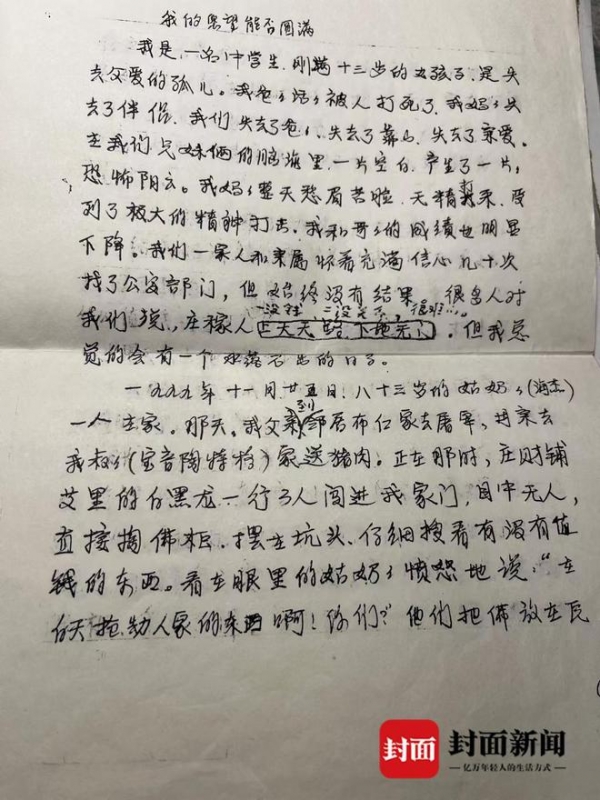 我的愿望能否圆满
我是一名中学生，刚满十三岁的女孩子，是失
去父爱的孤儿。我爸爸活活被人打死了，我妈妈失
去了伴侣，我们失去了爸爸，失去了靠山，失去了亲爱。
在我们兄妹俩的脑海里一片空白，产生了一片，
恐怖阴云。我妈妈整天愁眉苦脸，无精打采，受
到了极大的精神打击。我和哥哥的成绩也明显
下降。我们一家人和亲属怀着充满信心几十次
找了公安部门，但始终没有结果，很多人对
我们说，庄稼人一没钱，二没关系，很难…。
上天无路，下地无门，但我总
觉的会有一个水落石出的日子。
一九九九年十一月廿五日，八十三岁的姑奶奶(海杰)
一人在家。那天，我父亲到邻居布仁家去屠宰，并来去
我叔叔(宝音陶特格)家送猪肉。正在那时，庄财铺
艾里的白黑龙一行3人闯进我家门，目中无人，
直接掏佛柜，摆在坑头，仔细搜看有没有值
钱的东西。看在眼里的姑奶奶愤怒地说："在
白天抢劫人家的东西啊！你们？他们把佛放在瓦
封面
封面新闻
亿万年轻人的生活方式